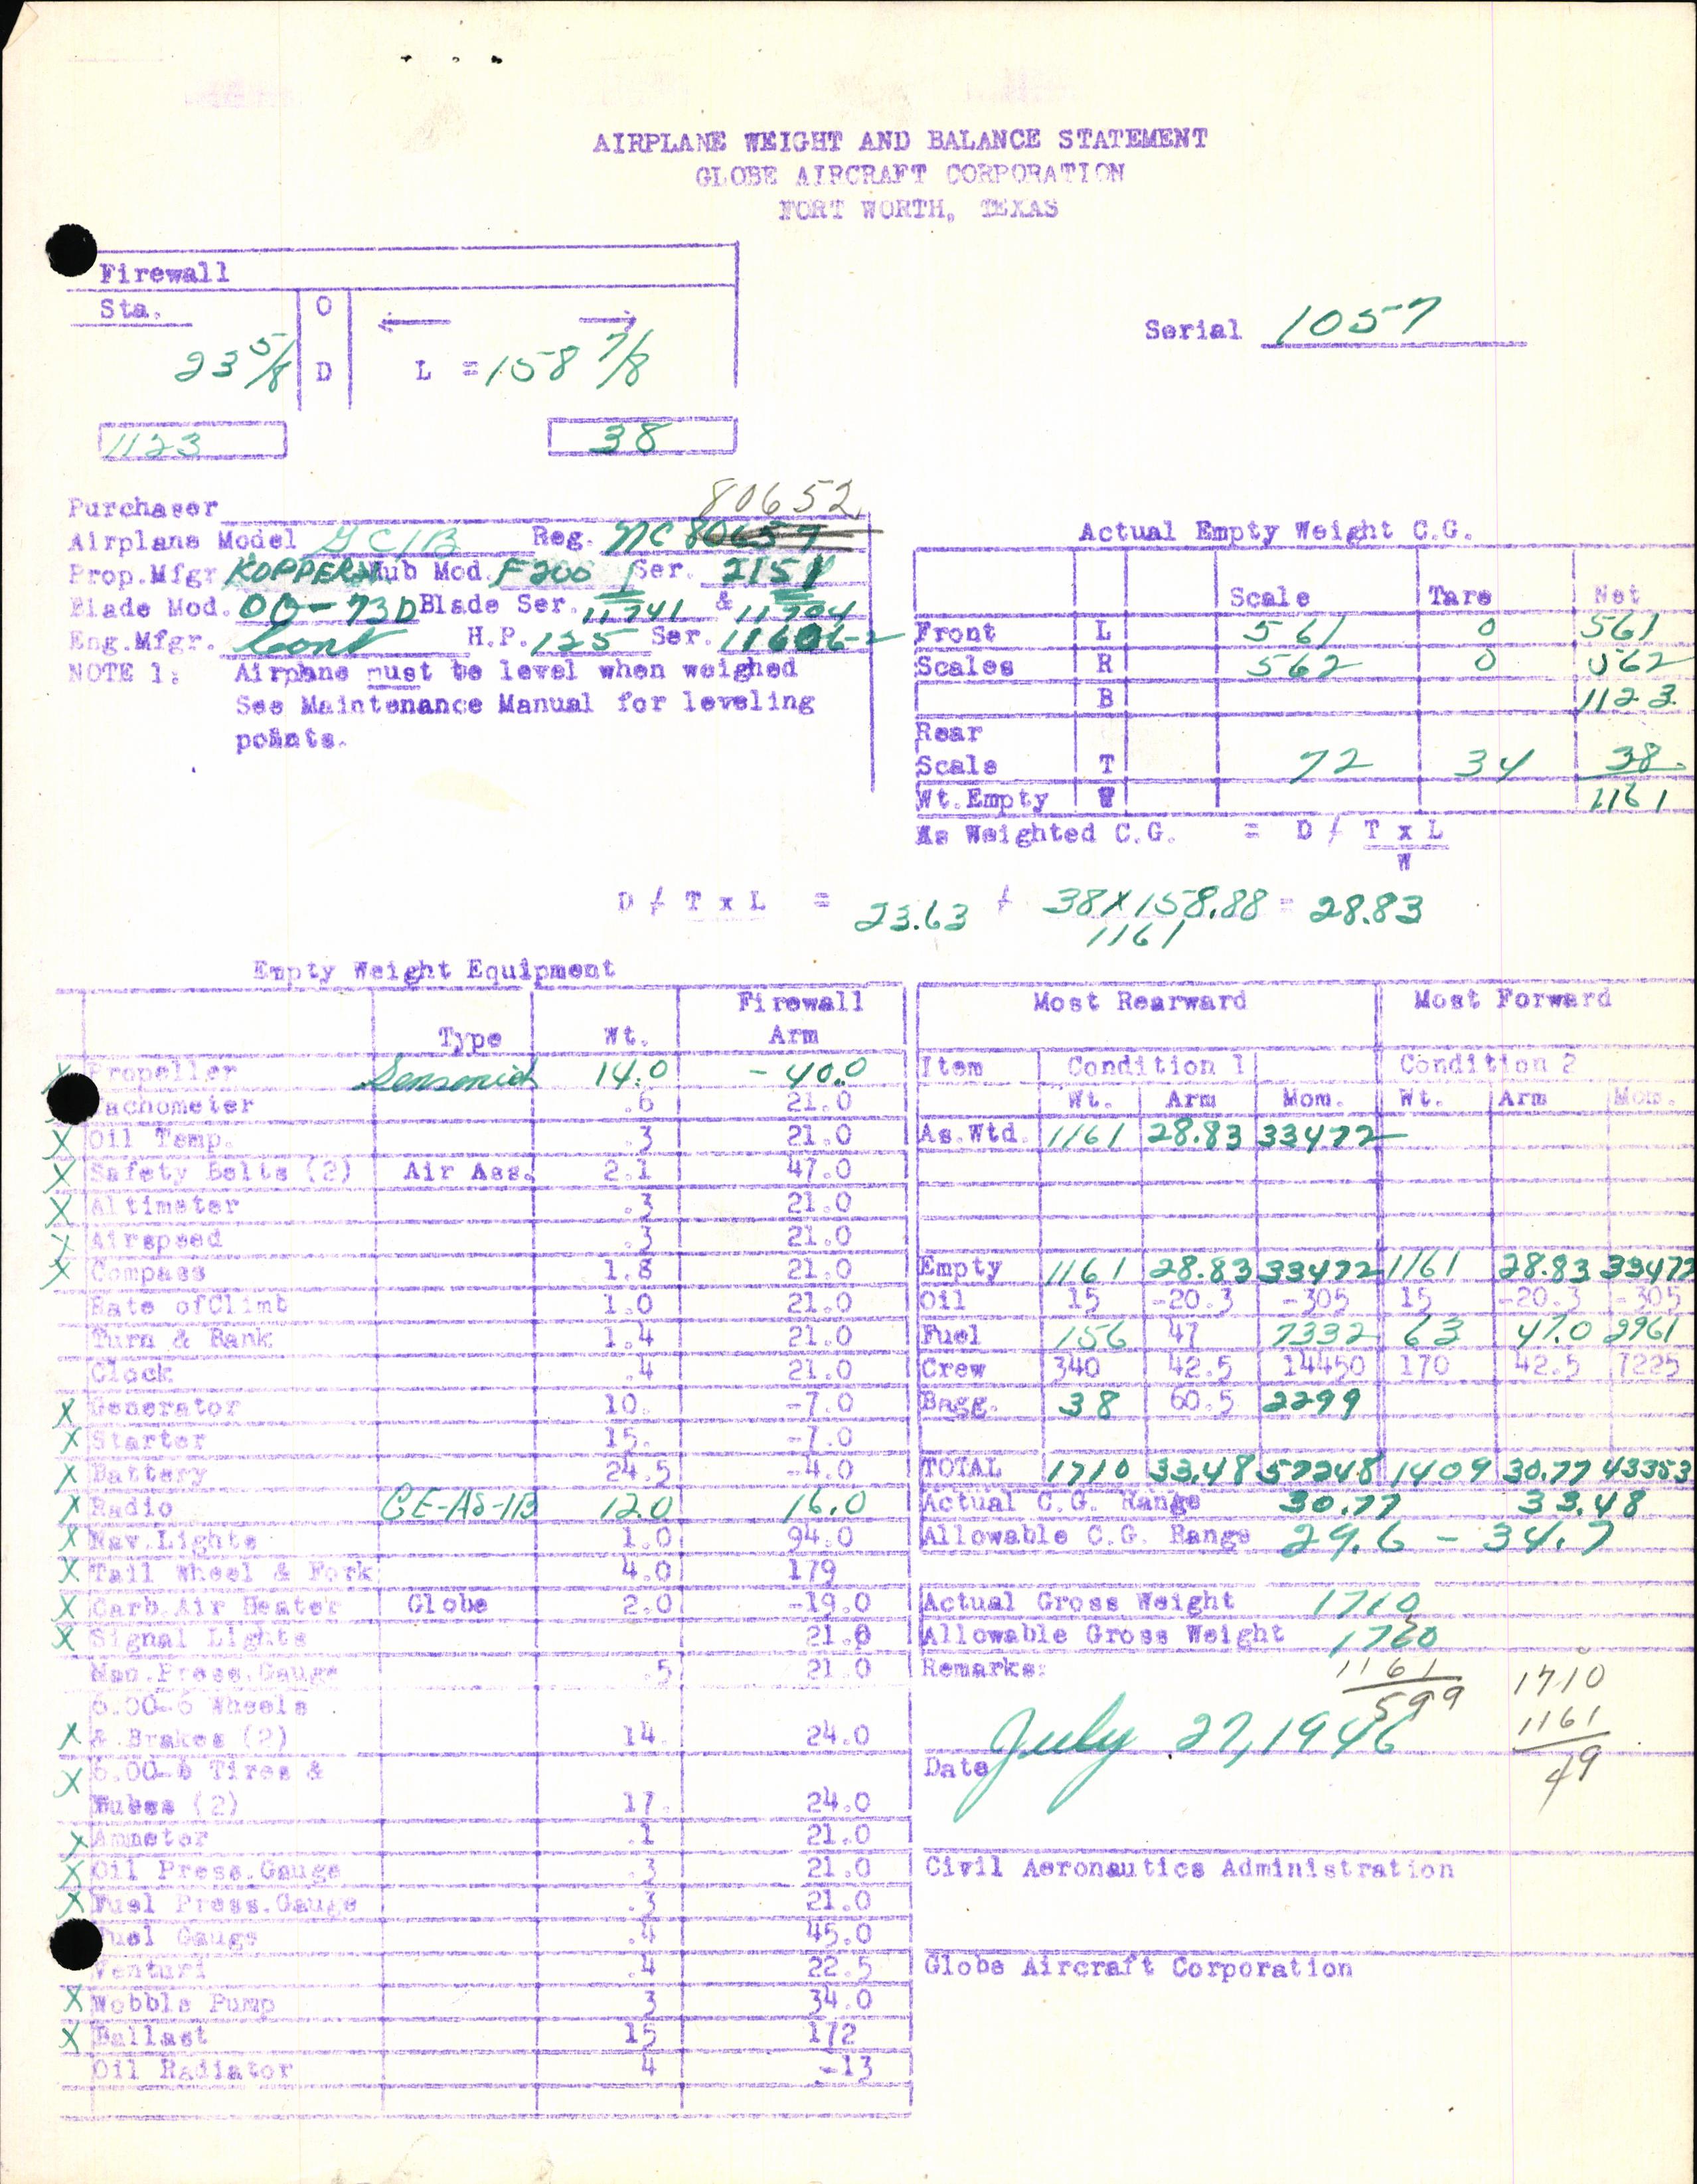 AIRPLANE WEIGHT AND BALANCE STATEMENT
GLOBE AIRCRAFT CORPORATION
FORT WORTH, TEXAS
Firewall
Sta. O
23 5/8 D L = 158 7/8
1123 38
Serial 1057
80652
Purchaser
Airplane Model GC1B Reg. NC 80657
Prop.Mfgr KOPPERS Hub Mod. F200 Ser. 2151
Blade Mod. 00-73D Blade Ser. 11741 & 11704
Eng.Mfgr. Cont H.P. 125 Ser. 11606-2
NOTE 1: Airplane must be level when weighed
See Maintenance Manual for leveling
points.
Actual Empty Weight C.G.
Scale Tare Net
Front L 561 0 561
Scales R 562 0 562
B 1123
Rear
Scale T 72 34 38
Wt.Empty W 1161
As Weighted C.G. = D / T x L
W
D / T x L = 23.63 / 38 X 158.88 = 28.83
1161
Empty Weight Equipment
Type Wt. Firewall Arm
X Propeller Sensenich 14.0 -40.0
Tachometer .6 21.0
X Oil Temp. .3 21.0
X Safety Belts (2) Air Ass. 2.1 47.0
X Altimeter .3 21.0
X Airspeed .3 21.0
X Compass 1.8 21.0
Rate ofClimb 1.0 21.0
Turn & Bank 1.4 21.0
Clock .4 21.0
X Generator 10. -7.0
X Starter 15. -7.0
X Battery 24.5 -4.0
X Radio GE-AS-1B 12.0 16.0
X Nav.Lights 1.0 94.0
X Tail Wheel & Fork 4.0 179
X Carb.Air Heater Globe 2.0 -19.0
X Signal Lights 21.0
Man.Press.Gauge .5 21.0
6.00-6 Wheels
X & Brakes (2) 14. 24.0
X 6.00-6 Tires &
Tubes (2) 17. 24.0
X Ammeter .1 21.0
X Oil Press.Gauge .3 21.0
X Fuel Press.Gauge .3 21.0
Fuel Gauge .4 45.0
Venturi .4 22.5
X Wobble Pump 3 34.0
X Ballast 15 172
Oil Radiator 4 -13
Most Rearward Most Forward
Item Condition 1 Condition 2
Wt. Arm Mom. Wt. Arm Mom.
As.Wtd. 1161 28.83 33472
Empty 1161 28.83 33472 1161 28.83 33472
Oil 15 -20.3 -305 15 -20.3 -305
Fuel 156 47 7332 63 47.0 2961
Crew 340 42.5 14450 170 42.5 7225
Bagg. 38 60.5 2299
TOTAL 1710 33.48 57248 1409 30.77 43353
Actual C.G. Range 30.77 33.48
Allowable C.G. Range 29.6 - 34.7
Actual Gross Weight 1710
Allowable Gross Weight 1710
Remarks: 1161 1710
599 1161
49
Date July 27, 1946
Civil Aeronautics Administration
Globe Aircraft Corporation